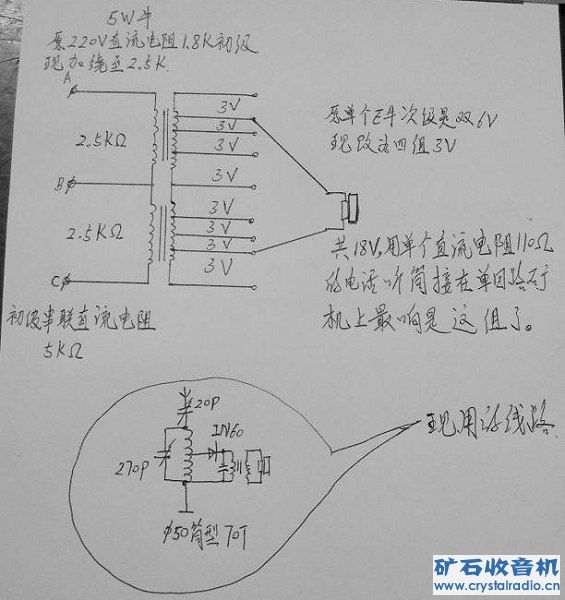 5W牛
原220V直流电阻1.8K初级
现加绕至2.5K.
A
3V
3V
2.5KΩ
3V
3V
B
3V
3V
2.5KΩ
3V
3V
C
原单个E牛次级是双6V
现改为四组3V
共18V,用单个直流电阻110Ω
的电话听筒接在单回路矿
机上最响是这组了。
初级串联直流电阻
5KΩ
20P
1N60
270P
φ50筒型70T
现用的线路
矿石收音机
www.crystalradio.cn